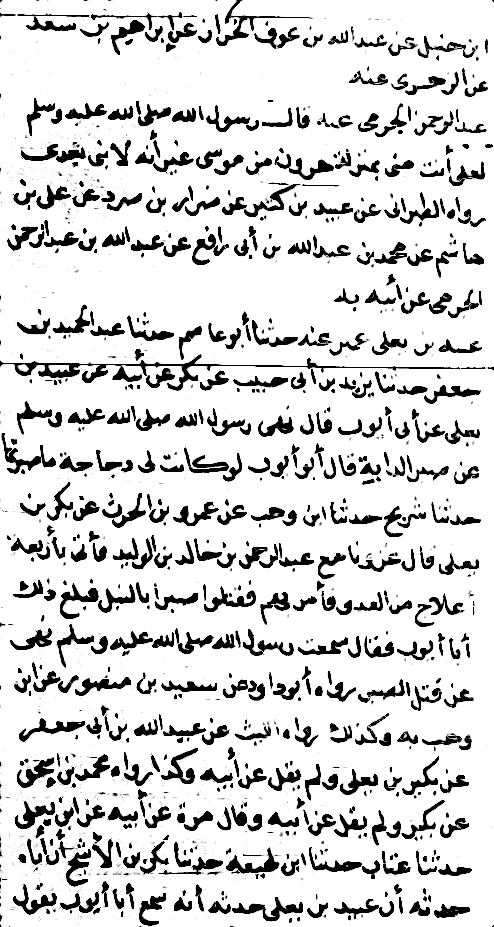 ابن حنبل عن عبدالله بن عوف الخراز عن إبراهيم بن سعد
عن الزهرى عنه
عبدالرحمن الجرمى عنه قال رسول الله صلى الله عليه وسلم
لعلى أنت منى بمنزلة هرون من موسى غير أنه لا نبى بعدى
رواه الطبرانى عن عبيد بن كثير عن ضرار بن صرد عن على بن
هاشم عن محمد بن عبدالله بن أبى رافع عن عبدالله بن عبدالرحمن
الجرمى عن أبيه به
عبيد بن يعلى عنه حدثنا أبو عاصم حدثنا عبدالحميد بن
جعفر حدثنا يزيد بن أبى حبيب عن بكير عن أبيه عن عبيد بن
يعلى عن أبى أيوب قال نهى رسول الله صلى الله عليه وسلم
عن صبر الدابة قال أبو أيوب لو كانت لى دجاجة ما صبرتها
حدثنا سريج حدثنا ابن وهب عن عمرو بن الحرث عن بكير بن
يعلى قال غزونا مع عبدالرحمن بن خالد بن الوليد فأتى بأربعة
أعلاج من العدو فأمر بهم فقتلوا صبرا بالنبل فبلغ ذلك
أبا أيوب فقال سمعت رسول الله صلى الله عليه وسلم نهى
عن قتل الصبر رواه أبو داود عن سعيد بن منصور عن ابن
وهب به وكذلك رواه الليث عن عبيد الله بن أبى جعفر
عن بكير بن يعلى ولم يقل عن أبيه وكذا رواه محمد بن إسحق
عن بكير ولم يقل عن أبيه وقال مرة عن أبيه عن ابن يعلى
حدثنا عتاب حدثنا ابن لهيعة حدثنا بكير بن الأشج أن أباه
حدثه أن عبيد بن يعلى حدثه أنه سمع أبا أيوب يقول